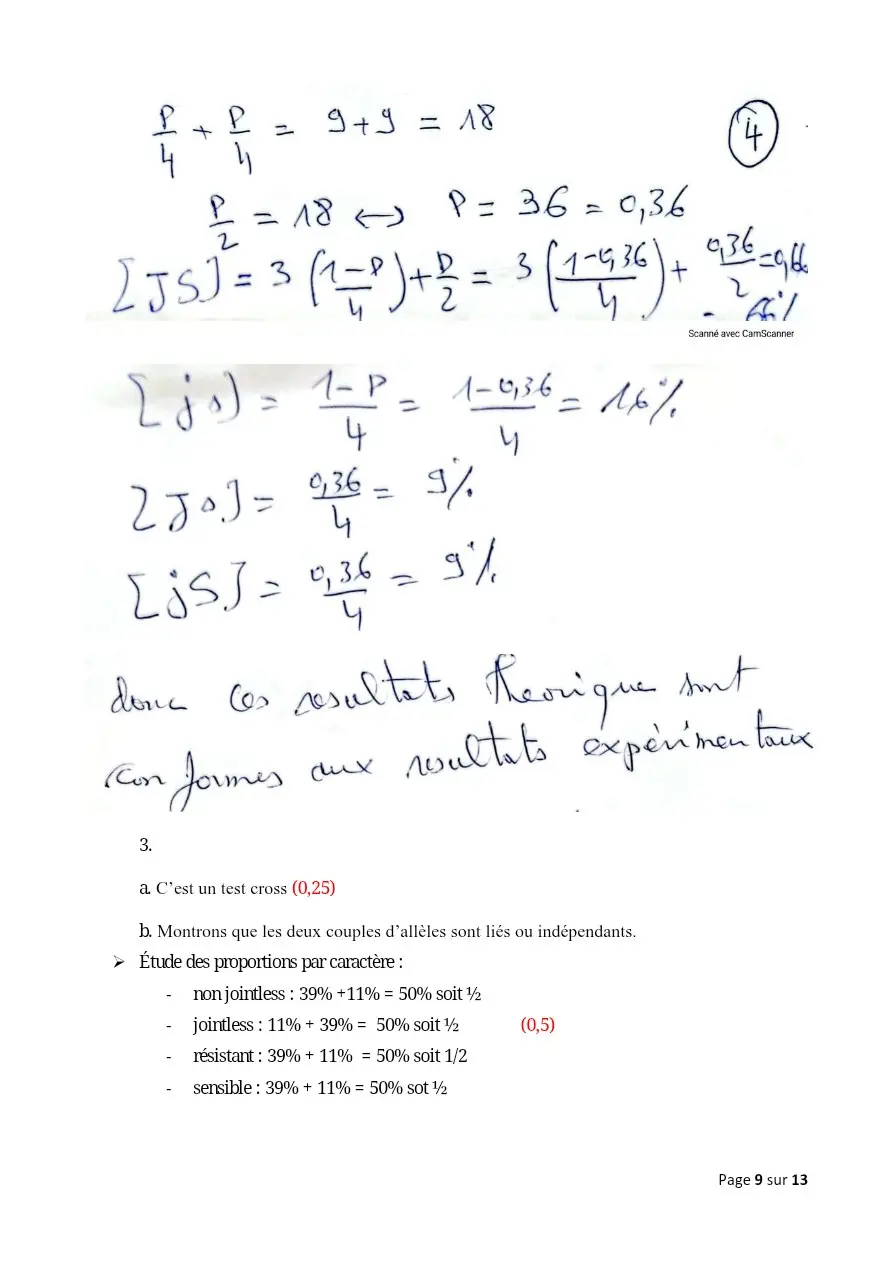 P/4 + P/4 = 9+9 = 18
4
P/2 = 18 ↔ P = 36 = 0,36
[JS] = 3 (1-P/4) + P/2 = 3 (1-0,36/4) + 0,36/2 = 0,66
= 66%
Scanné avec CamScanner
[js) = 1-P/4 = 1-0,36/4 = 16%
[Js] = 0,36/4 = 9%
[jS] = 0,36/4 = 9%
donc ces resultats theorique sont
conformes aux resultats expérimentaux
3.
a. C’est un test cross (0,25)
b. Montrons que les deux couples d’allèles sont liés ou indépendants.
➢ Étude des proportions par caractère :
- non jointless : 39% +11% = 50% soit ½
- jointless : 11% + 39% = 50% soit ½ (0,5)
- résistant : 39% + 11% = 50% soit 1/2
- sensible : 39% + 11% = 50% sot ½
Page 9 sur 13